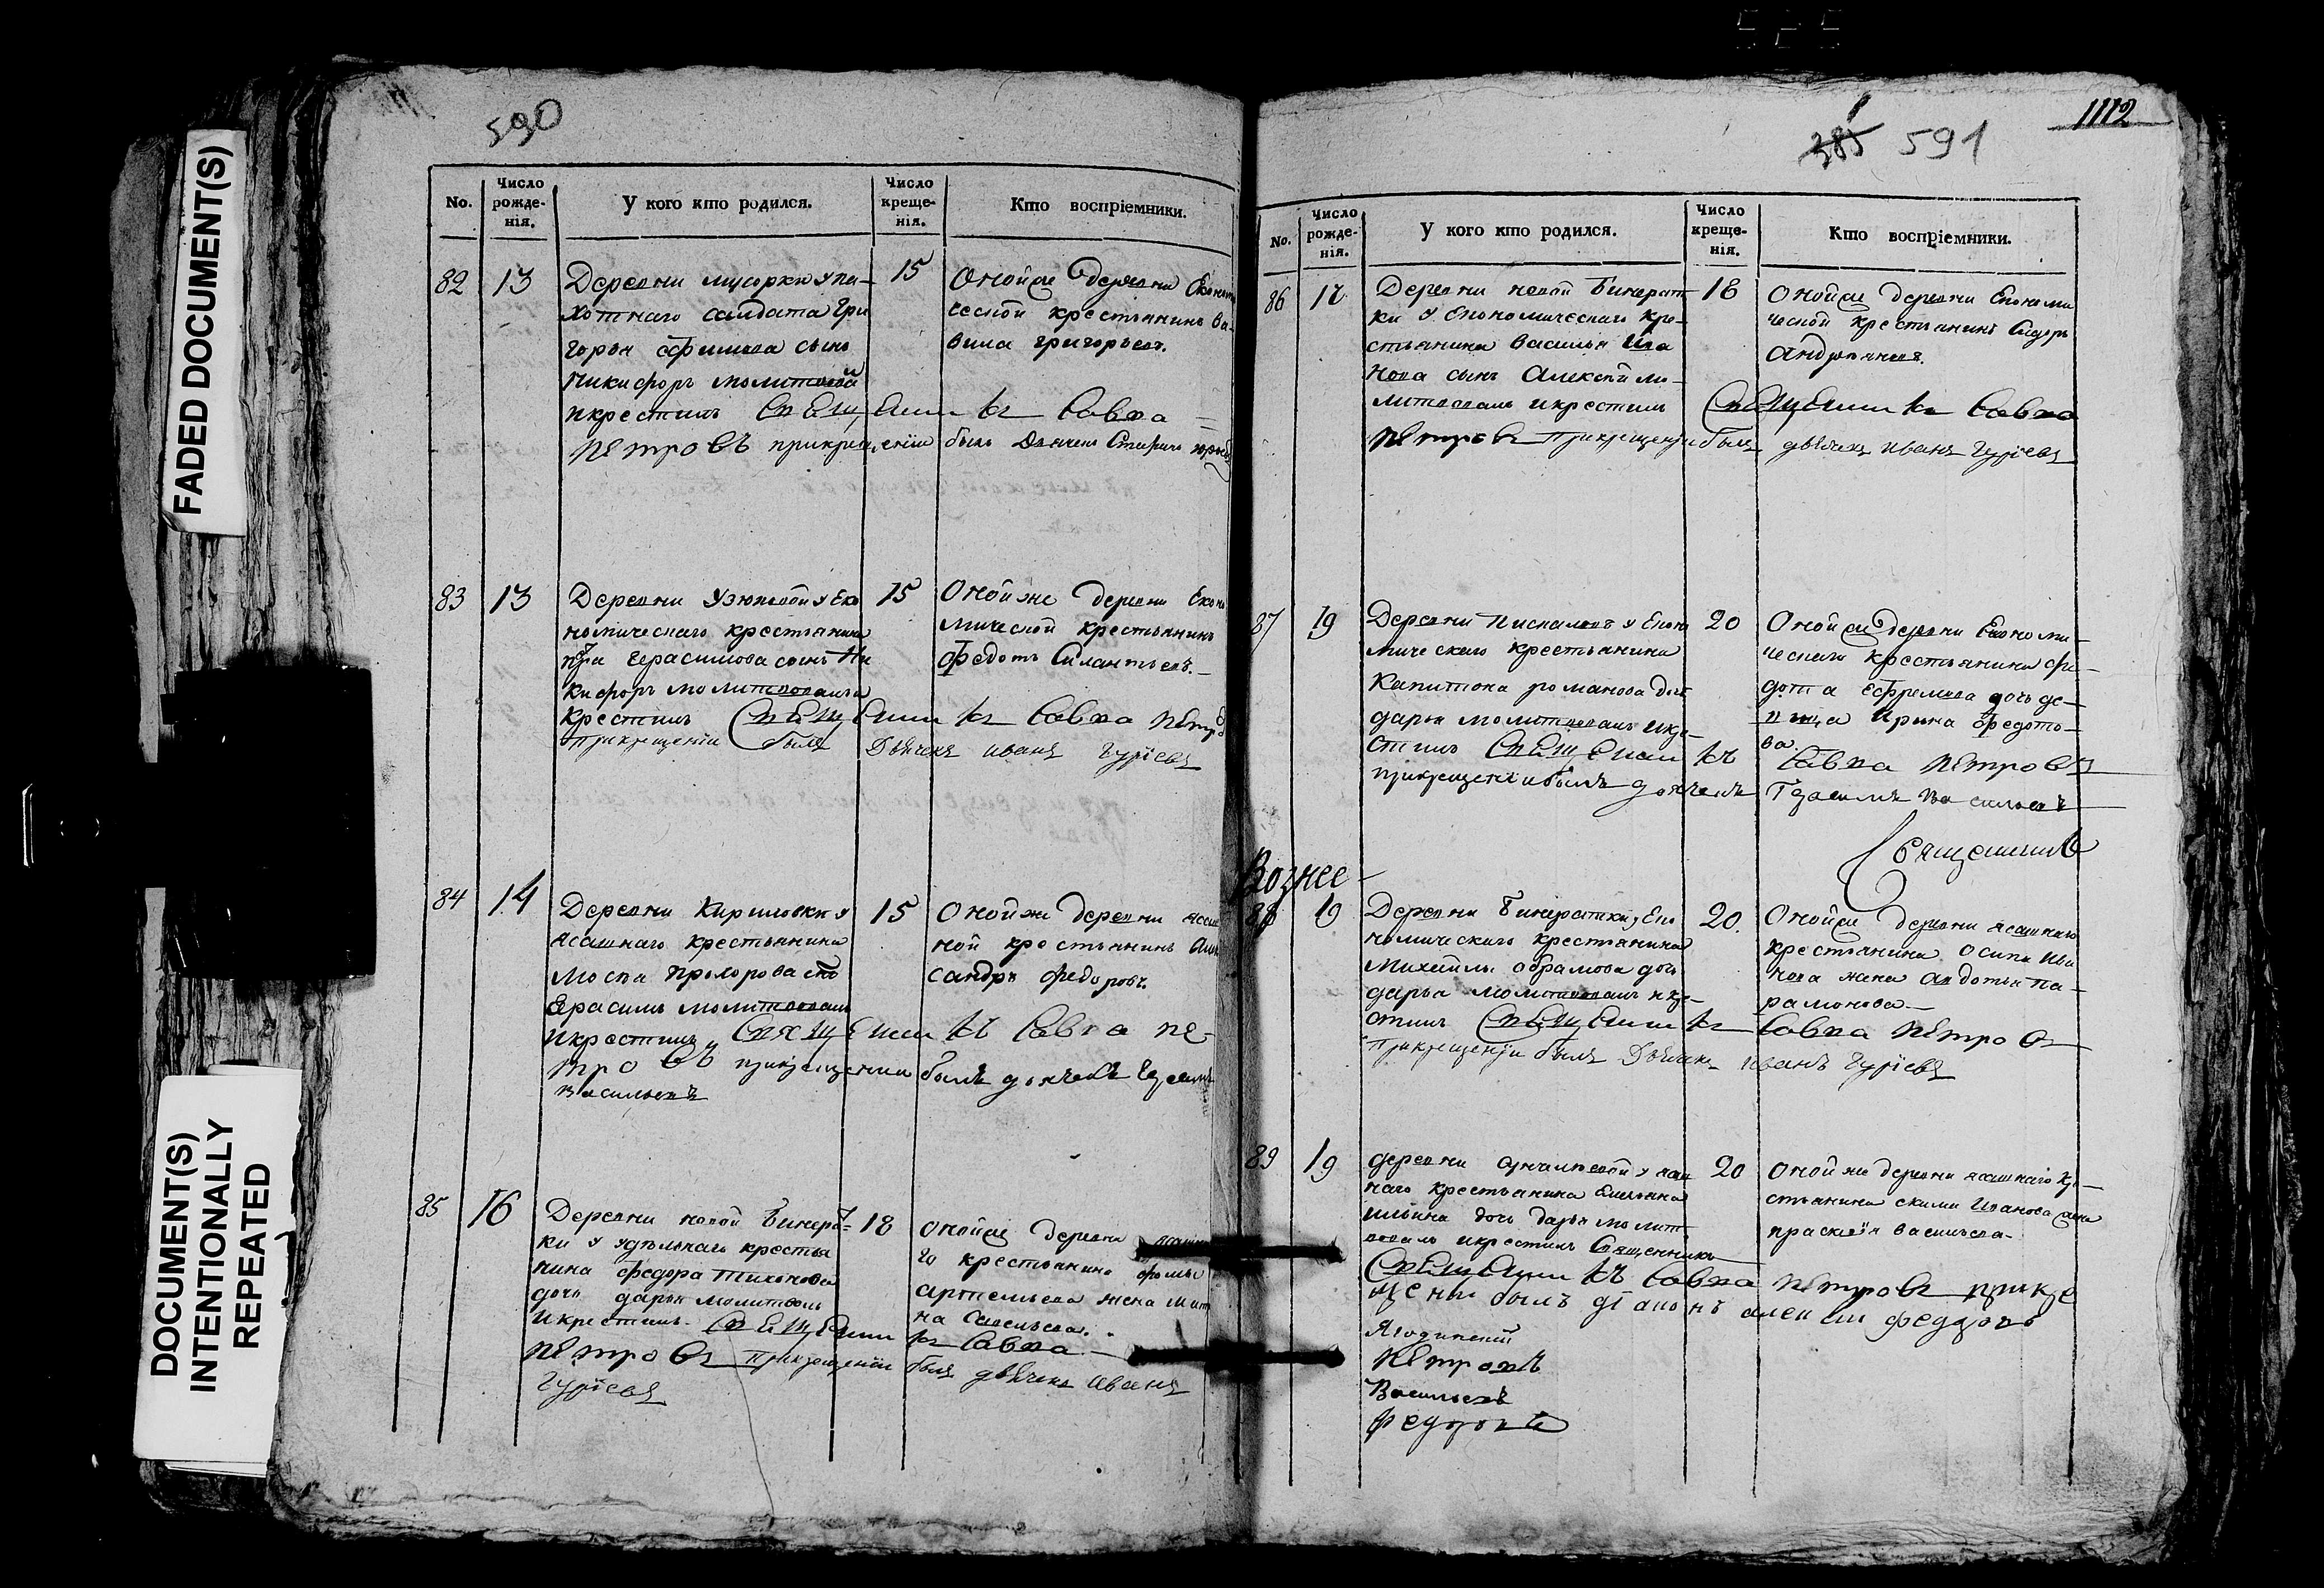 FADED DOCUMENT(S)
DOCUMENT(S)
INTENTIONALLY
REPEATED
590
No.
Число
рожде-
нія.
У кого кто родился.
Число
креще-
нія.
Кто воспріемники.
82
13
Деревни мусорки у пе-
хотнаго салдата Гри
горья Ефимова сынъ
Никифоръ молитвовалъ
икрестилъ Священникъ Савва
Петровъ прикрещеніи былъ Дьячекъ
15
Оной же деревни Економи
ческой крестьянинъ Ва-
вила Григорьевъ.
83
13
Деревни Узюковой у Еко
номическаго крестьянина
Герасимова сынъ Ни
кифоръ молитвовалъ и
крестилъ Священникъ Савва Петровъ
прикрещеніи былъ Дьячекъ иванъ Гуріевъ
15
Оной же деревни Еконо
мической крестьянинъ
Федотъ Силантьевъ.
84
14
Деревни Кириловки у
ясашнаго крестьянина
Прохорова сынъ
Герасимъ молитвовалъ
икрестилъ Священникъ Савва Пе-
тровъ прикрещении былъ дьячекъ Герасимъ
Васильевъ
15
Оной же деревни ясаш
ной крестьянинъ Алек
сандръ Федоровъ.
85
16
Деревни новой Бинарат-
ки у удѣльнаго крестья
нина Федора Тихонова
дочь дарья молитвовалъ
икрестилъ Священникъ Савва
Петровъ прикрещеніи былъ дьячекъ иванъ
Гуріевъ
18
Оной же деревни ясашна
го крестьянина Фомы
жена
Савельева.
1112
385 591
No.
Число
рожде-
нія.
У кого кто родился.
Число
креще-
нія.
Кто воспріемники.
86
Деревни новой Бинарат-
ки у Економическаго кре-
стьянина Василья Ива
нова сынъ Алексѣй мо-
литвовалъ икрестилъ Священникъ Савва
Петровъ прикрещеніи былъ дьячекъ иванъ Гуріевъ
18
Оной же деревни Економи
ческой крестьянинъ Сидоръ
Андреяновъ.
87
19
Деревни Пискаловъ у Еконо
мическаго крестьянина
Капитона романова дочь
дарья молитвовалъ икре-
стилъ Священникъ Савва Петровъ
прикрещении былъ дьячекъ Герасимъ Васильевъ
20
Оной же деревни Економи-
ческаго крестьянина Фе-
дота Ефремова дочь де-
вица Ирина Федото-
ва.
Священникъ
Вознее-
88
19
Деревни Бинаратки у Еко
номическаго крестьянина
Михайлы абрамова дочь
дарья молитвовалъ икре-
стилъ Священникъ Савва Петровъ
прикрещеніи былъ Дьячекъ иванъ Гуріевъ
20.
Оной же деревни ясашнаго
крестьянина Осипа Ива
нова жена Авдотья Па-
рамонова
89
19
деревни у ясаш
наго крестьянина Емельяна
ильина дочь дарья молит
вовалъ икрестилъ Священникъ
Священникъ Савва Петровъ прикре
щении былъ діаконъ алексѣй Федоровъ
20
Оной же деревни ясашнаго кре-
стьянина Иванова жена
прасковья васильева.
Ягодинскій
Петровъ
Васильевъ
Федоровъ